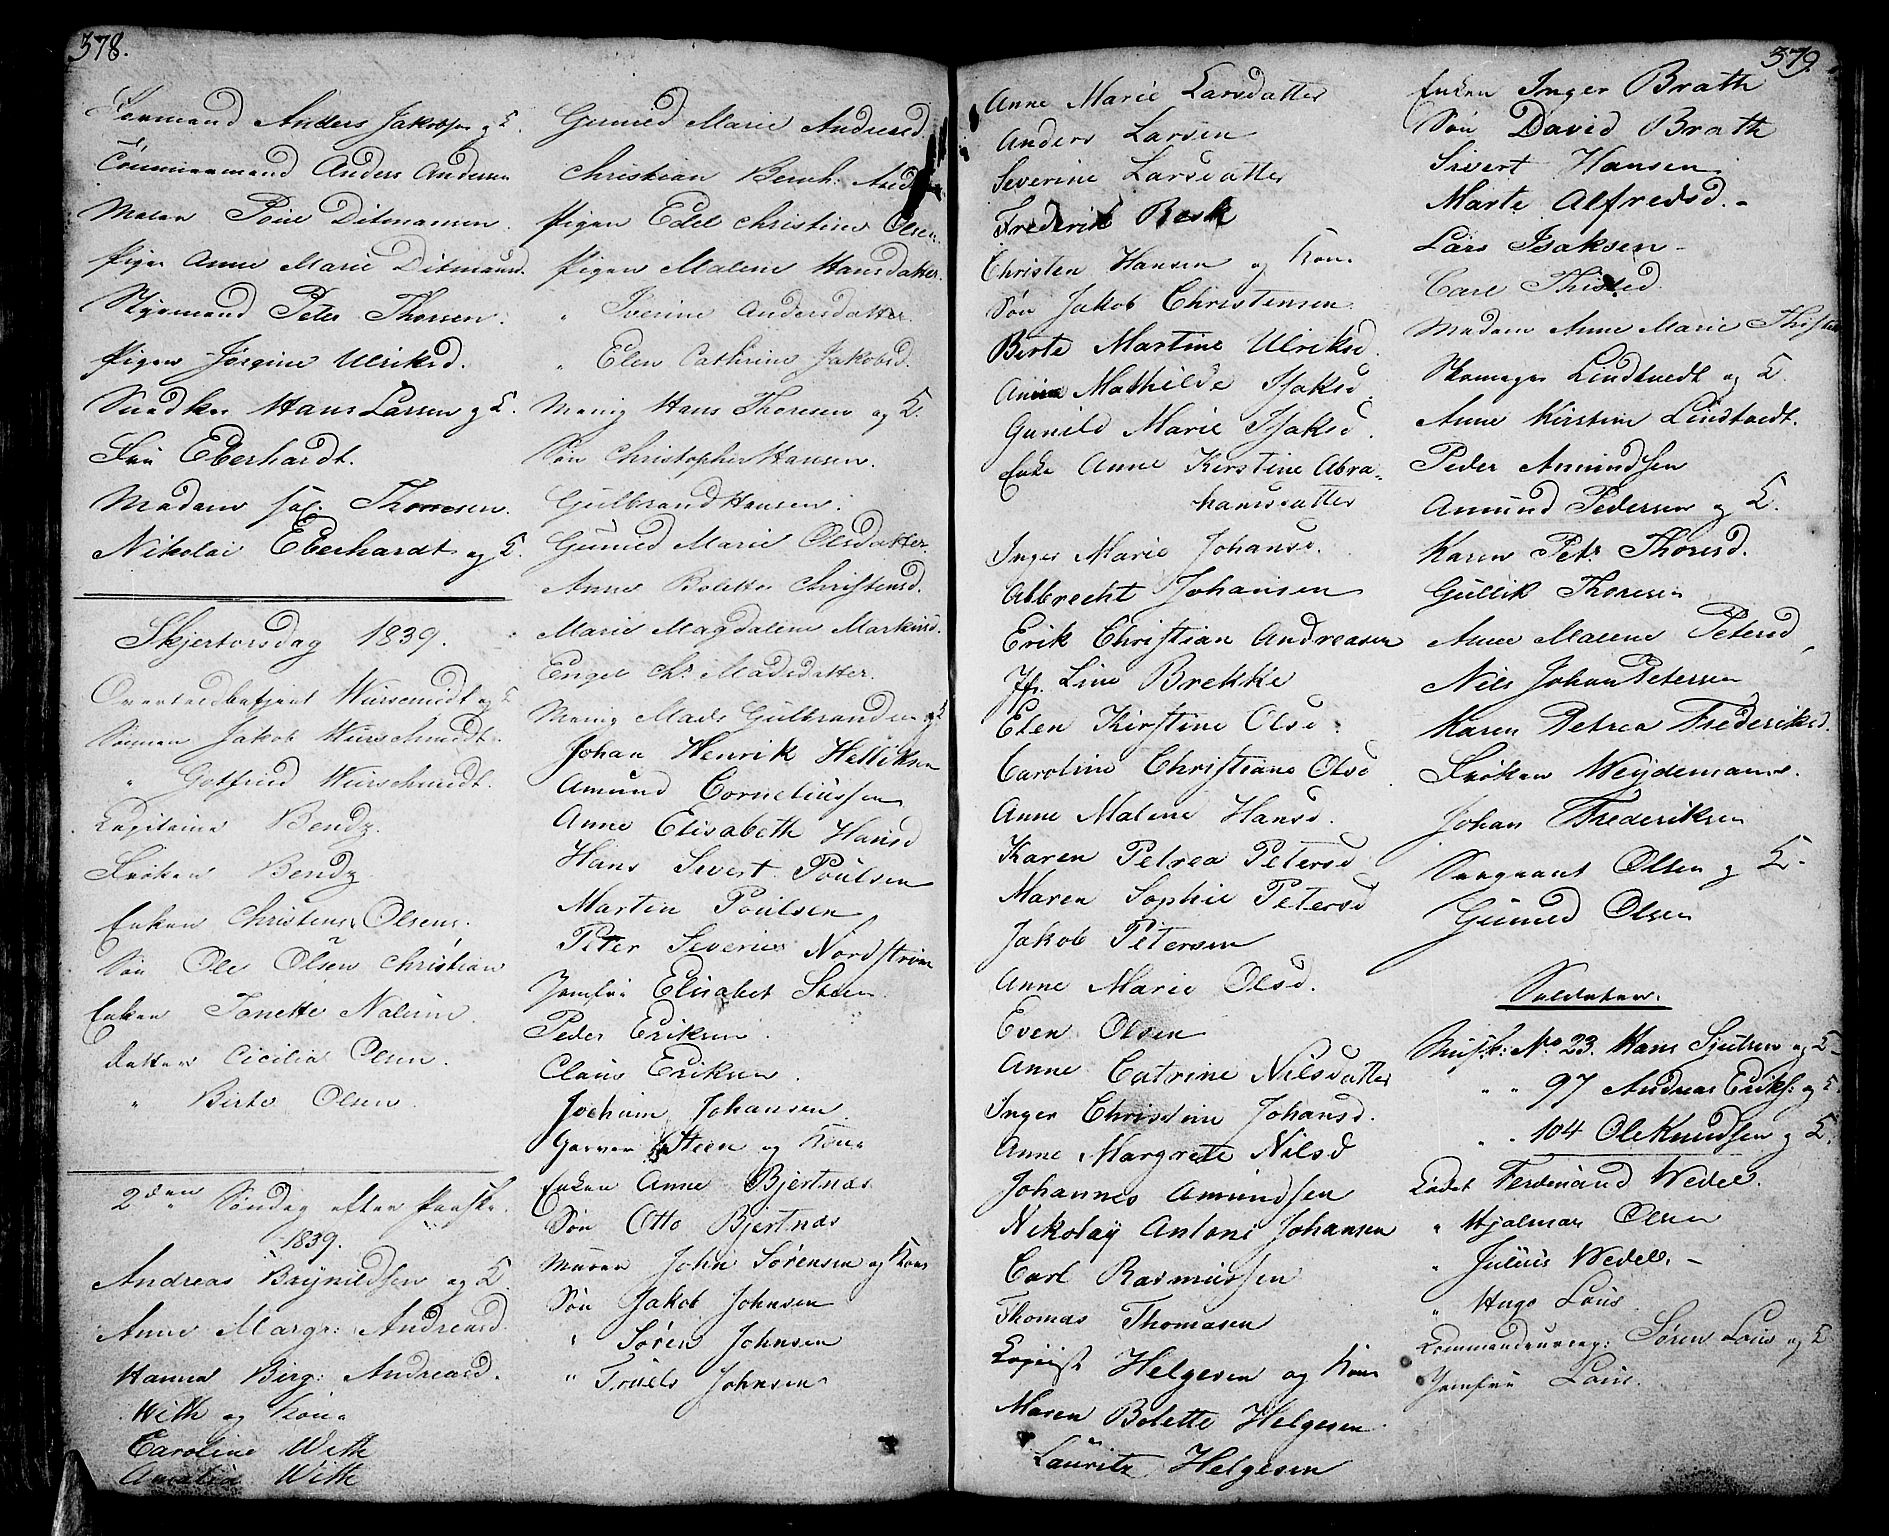 378.
Formand Anders Jakobsen og K.
Tømmermand Anders Andersen
Maler Poul Ditmansen.
Pigen Anne Marie Ditmansd.
Styrmand Peter Thorsen.
Pigen Jørgine Ulriksd.
Snedker Hans Larsen og K.
Fru Eberhardt.
Madame sal. Thoresen.
Nikolai Eberhardt og K.
Skjertorsdag 1839.
Overtoldbetjent Würschmidt og K
Sønnen Jakob Würschmidt.
" Gotfried Würschmidt.
Capitaine Bendz.
Frøken Bendz.
Enken Christense Olsens.
Søn Ole Olsen Christian
Enken Janette Nalum.
datter Cicilia Olsen.
" Birte Olsen.
2den Søndag efter Paaske.
1839.
Andreas Brynildsen og K.
Anne Margr: Andreasd.
Hanna Birg: Andreasd.
With og Kone
Caroline With
Amalia With
Gunild Marie Andreasd.
Christian Bernh:
Pigen Edel Christine Olsen.
Pigen Malene Hansdatter.
" Iverine Andersdatter.
" Elen Cathrine Jakobsd.
Menig Hans Thoresen og K.
Søn Christopher Hansen.
Gulbrand Hansen.
Gunild Marie Olsdatter.
Anne Bolette Christensd.
Marie Magdalene Markusd.
Engel Chr. Madsdatter.
Menig Mads Gulbrandsen og K
Johan Henrik Helliksen
Amund Corneliussen
Anne Elisabeth Hansd
Hans Sivert Poulsen
Martin Poulsen
Peter Severin Nordstrøm
Jomfru Elisabet Steen.
Peder Eriksen.
Claus Eriksen.
Jochum Johansen.
Garver Steen og Kone
Enken Anne Bjertnæs
Søn Otto Bjertnæs
Murer John Sørensen og Kone
Søn Jakob Johnsen
" Søren Johnsen
" Truels Johnsen
379.
Anne Marie Larsdatter
Anders Larsen
Severine Larsdatter
Frederik Beck
Christen Hansen og Kone
Søn Jakob Christensen.
Birte Martine Ulriksd.
Anne Mathilde Isaksd
Gunild Marie Isaksd.
Enke Anne Kirstine Abra-
hamsdatter
Inger Marie Johansd.
Albrecht Johansen
Erik Christian Andreasen
Jfr. Line Brekke
Elen Kirstine Olsd.
Caroline Christiane Olsd
Anne Malene Hansd.
Karen Petrea Petersd
Maren Sophie Petersd
Jakob Petersen
Anne Marie Olsd.
Even Olsen
Anne Catrine Nilsdatter
Inger Christine Johansd.
Anne Margrete Nilsd
Johannes Amundsen
Nikolay Antoni Johansen
Carl Rasmussen
Thomas Thomasen
Kopiist Helgesen og Kone
Maren Bolette Helgesen
Lauritz Helgesen
Enken Inger Brath
Søn David Brath
Sivert Hansen
Marte Alfredsd.
Lars Isaksen
Carl Thisted
Madam Anne Marie
Skomager Lindtvedt og K.
Anne Kirstine Lindtvedt.
Peder Amundsen
Amund Pedersen og K.
Karen Petr. Thoresd.
Gullik Thoresen
Anne Malene Petersd
Nils Johan Petersen
Karen Petrea Frederiksd.
Frøken Weydemann.
Johan Frederiksen
Sergeant Olsen og K.
Gunild Olsen
Soldater.
Musk: No 23. Hans og K.
" " 97 Andreas Eriks: og K
" " 104 Ole Knudsen og K.
Cadet Ferdinand Wedel.
" Hjalmar Olsen
" Julius Wedel.
" Hugo Lous
Commandeurcap: Søren Lous og K
Jomfru Lous.